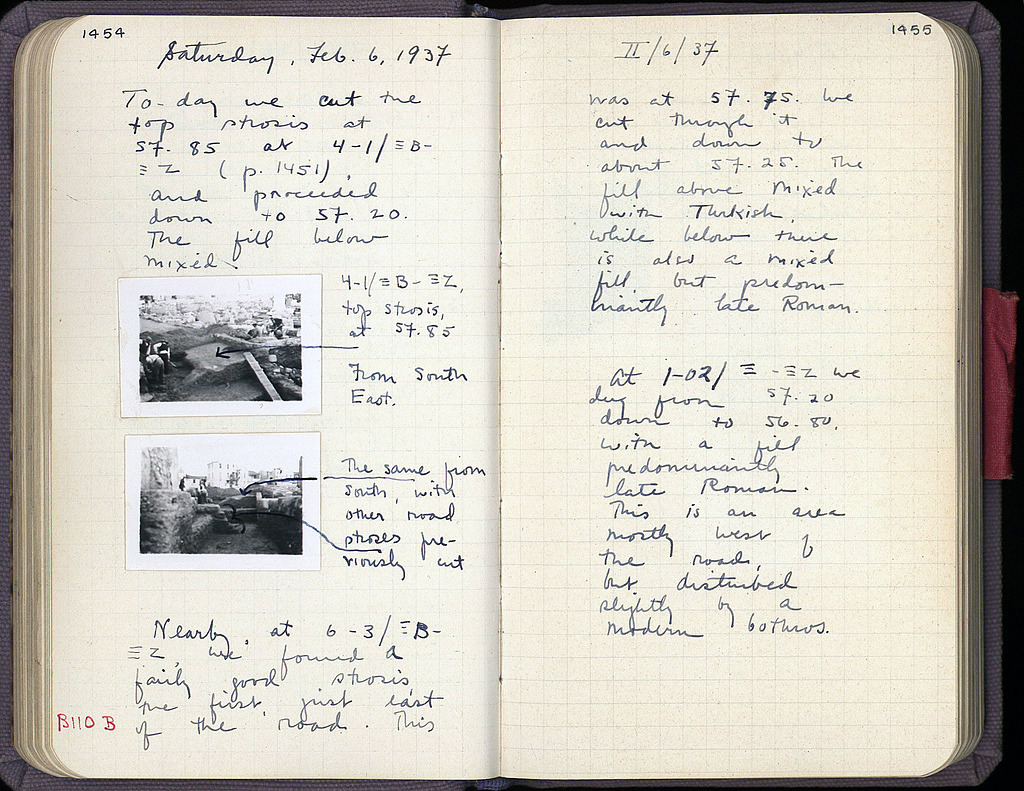 1454
Saturday, Feb. 6, 1937
To-day we cut the
top strosis at
57.85 at 4-1/ΞB-
ΞZ (p. 1451),
and proceeded
down to 57.20.
The fill below
mixed.
4-1/ΞB-ΞZ,
top strosis,
at 57.85
From South
East.
The same from
South, with
other road
stroses pre-
viously cut
Nearby, at 6-3/ΞB-
ΞZ, we found a
fairly good strosis,
the first, just east
of the road. This
B110 B
1455
II/6/37
was at 57.75. We
cut through it
and down to
about 57.25. The
fill above mixed
with Turkish,
while below there
is also a mixed
fill, but predom-
inantly late Roman.
At 1-02/Ξ-ΞZ we
dug from 57.20
down to 56.80,
with a fill
predominantly
late Roman.
This is an area
mostly west of
the road,
but disturbed
slightly by a
modern bothros.